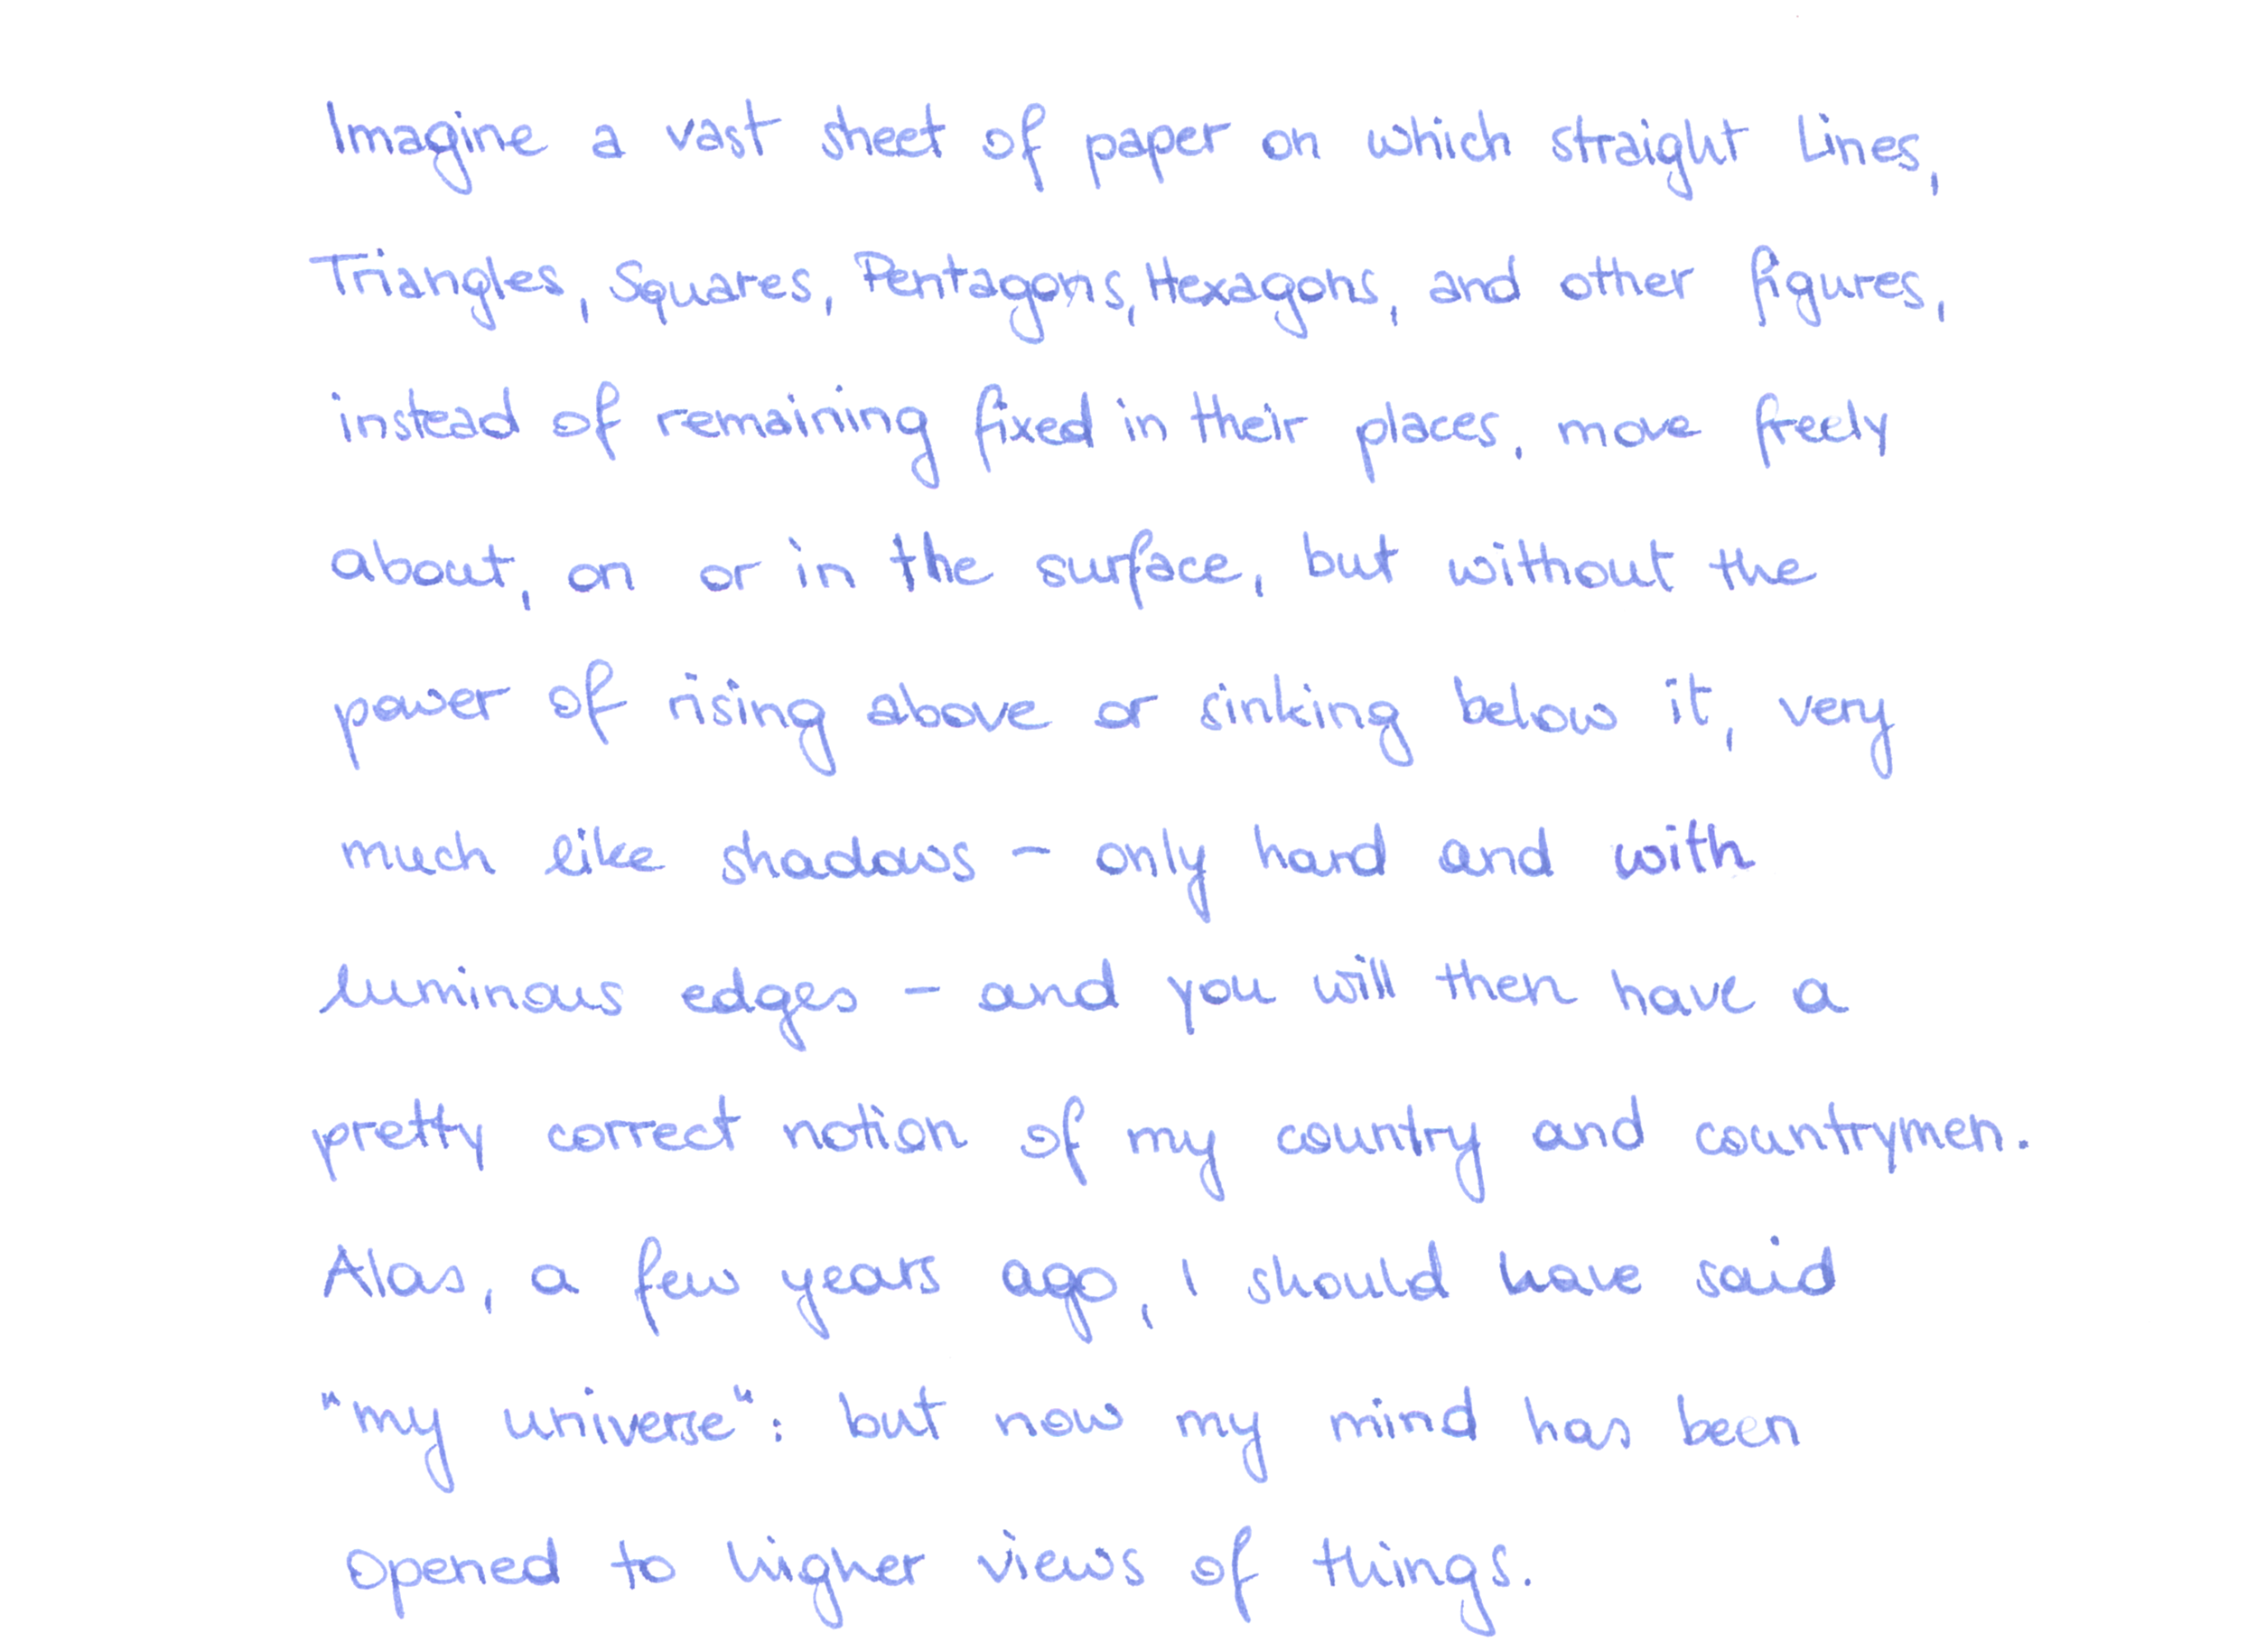 Imagine a vast sheet of paper on which straight Lines,
Triangles, Squares, Pentagons, Hexagons, and other figures,
instead of remaining fixed in their places, move freely
about, on or in the surface, but without the
power of rising above or sinking below it, very
much like shadows - only hard and with
luminous edges - and you will then have a
pretty correct notion of my country and countrymen.
Alas, a few years ago, I should have said
"my universe": but now my mind has been
opened to higher views of things.